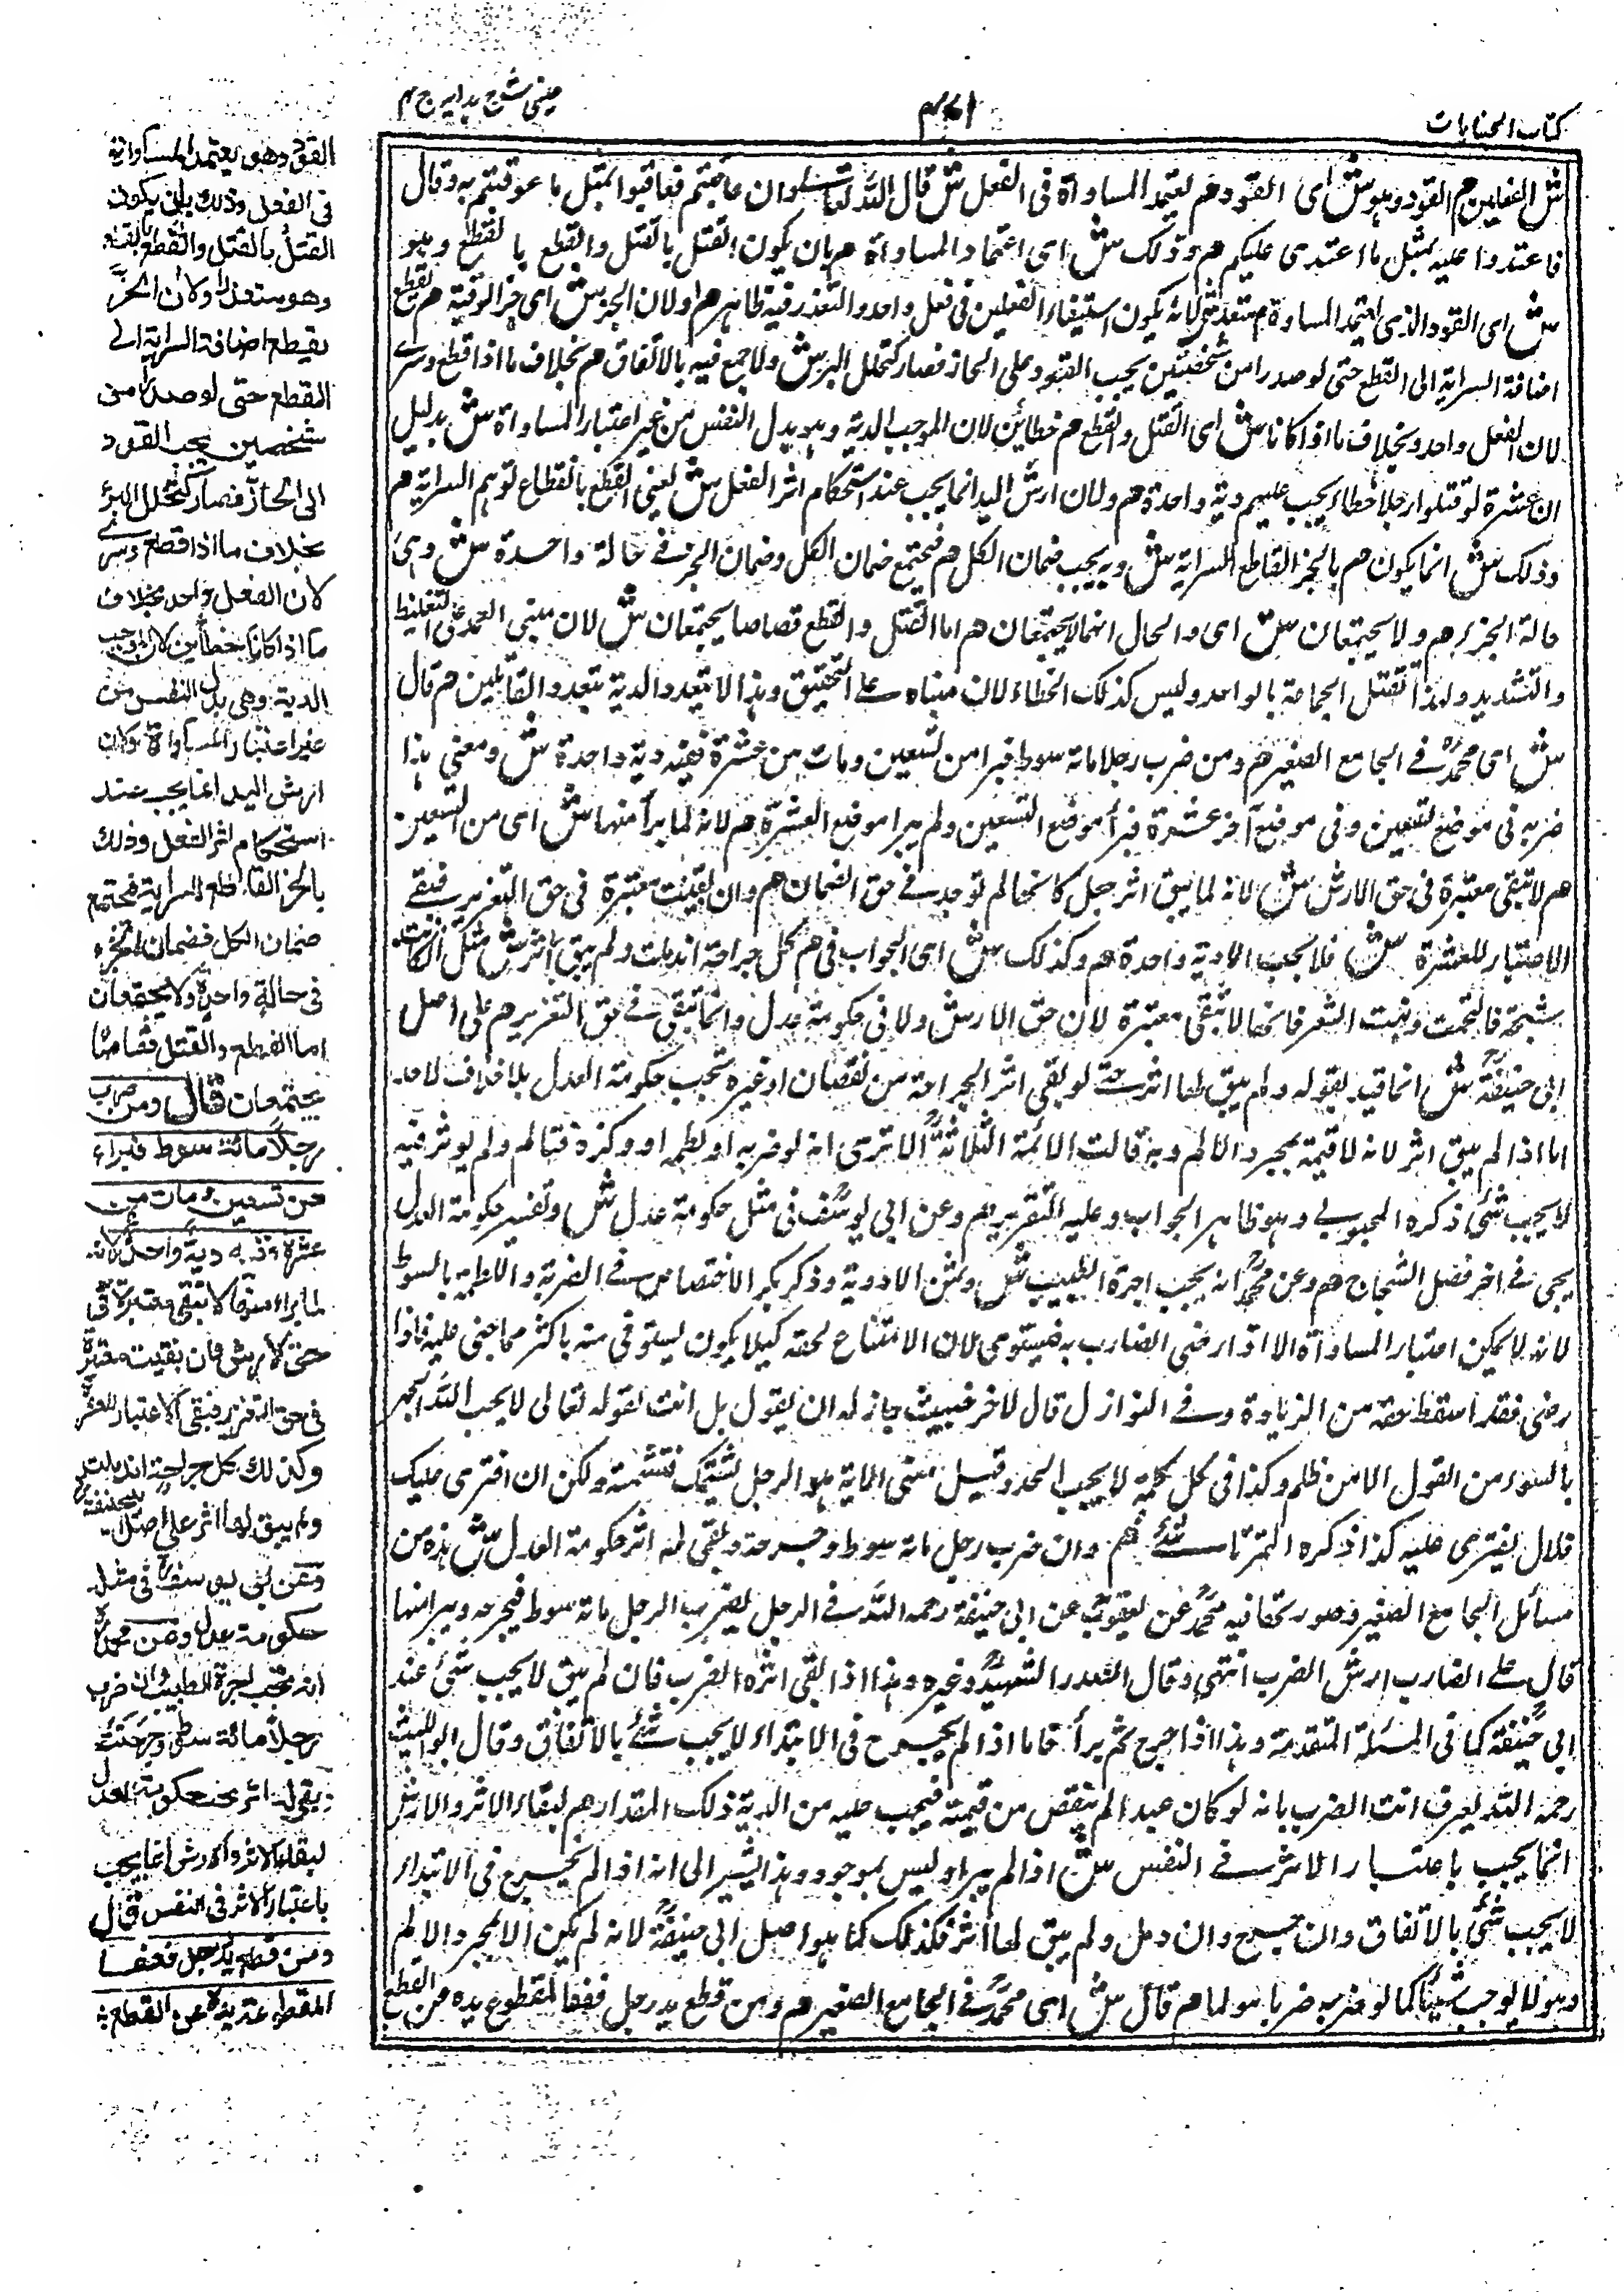 كتاب الجنايات
عینی شرح ہدایہ ج ۴
ش الفعلين م القود وهو ش اى القود هم يعتمد المساواة فى الفعل ش قال الله تعالى وان عاقبتم فعاقبوا بمثل ما عوقبتم به وقال
فاعتدوا عليه بمثل ما اعتدى عليكم هم وذلك ش اى اعتماد المساواة هم بان يكون القتل بالقتل والقطع بالقطع وهو
ش اى القود الذى يعتمد المساواة م متعذر ش لانه يكون استيفاء الفعلين فى فعل واحد والتعذر فيه ظاهر هم اولان الحز ش اى حز الرقبة هم يقطع
اضافة السراية الى القطع حتى لو صدرا من شخصين يجب القود على الحاز فصار كتخلل البرء ش ولا جمع فيه بالاتفاق هم بخلاف ما اذا قطع وسرى
لان الفعل واحد وبخلاف ما اذا كانا ش اى القتل والقطع هم خطائين لان الموجب الدية وهو بدل النفس من غير اعتبار المساواة ش بدليل
ان عشرة لو قتلوا رجلا خطاء يجب عليهم دية واحدة هم ولان ارش اليد انما يجب عند استحكام اثر الفعل ش يعنى القطع بانقطاع توهم السراية هم
وذلك ش انما يكون هم بالحز القاطع للسراية ش وبه يجب ضمان الكل هم فيجتمع ضمان الكل وضمان الجزء فى حالة واحدة ش وهى
حالة الحز هم ولا يجتمعان ش اى والحال انهما لا يجتمعان هم اما القتل والقطع قصاصا يجتمعان ش لان مبنى العمد على التغليظ
والتشديد ولهذا تقتل الجماعة بالواحد وليس كذلك الخطاء لان مبناه على التخفيف وهذا لا يتعدد الدية بتعدد القاتلين هم قال
ش اى محمد فى الجامع الصغير هم ومن ضرب رجلا مائة سوط فبرا من تسعين ومات من عشرة ففيه دية واحدة ش ومعنى هذا
ضربه فى موضع تسعين وفى موضع آخر عشرة فبرأ موضع التسعين ولم يبرا موضع العشرة هم لانه لما برأ منها ش اى من التسعين
هم لا تبقى معتبرة فى حق الارش ش لانه لما يبق اثر جعل كانها لم توجد فى حق الضمان هم وان بقيت معتبرة فى حق التعزير فبقى
الاعتبار للعشرة ش فلا يجب الا دية واحدة هم وكذلك ش اى الجواب فى هم كل جراحة اندملت ولم يبق لها اثر ش مثل ان كانت
شجة فالتحمت ونبت الشعر فانها لا تبقى معتبرة لان حق الارش ولا فى حكومة عدل وانما تبقى فى حق التعزير هم على اصل
ابى حنيفة ش انما قيد بقوله ولم يبق لها اثر حتى لو بقى اثر الجراحة من نقصان او غيره تجب حكومة العدل بلا خلاف لاحد
اما اذا لم يبق اثر لانه لا قيمة لمجرد الالم وبه قالت الائمة الثلاثة الا ترى انه لو ضربه او لطمه او وكزه فتالم ولم يوثر فيه
لا يجب شئ ذكره المحبوبى وهو ظاهر الجواب وعليه التقرير هم وعن ابى يوسف فى مثله حكومة عدل ش وتفسير حكومة العدل
يجئ فى اخر فصل الشجاج هم وعن محمد انه يجب اجرة الطبيب ش وثمن الادوية وذكر بكر الاختصاص فى الضربة واللطمة بالسوط
لانه لا يمكن اعتبار المساواة الا اذا رضى الضارب به فيستوى لان الامتناع لحقه كيلا يكون يستوفى منه باكثر مما جنى عليه فاذا
رضى فقد اسقط حقه من الزيادة وفى النوازل قال لاخر خبيث جاز له ان يقول بل انت لقوله تعالى لا يحب الله الجهر
بالسوء من القول الا من ظلم وكذا فى كل كلمة لا يجب الحد وقيل معنى الاية هو الرجل يشتمك فتشتمه ولكن ان افترى عليك
فلان يفترى عليه كذا ذكره التمرتاشى هم وان ضرب رجل مائة سوط وجرحه وبقى له اثر حكومة العدل ش هذه من
مسائل الجامع الصغير وصورتها فيه محمد عن يعقوب عن ابى حنيفة رحمه الله فى الرجل يضرب الرجل مائة سوط فيجرحه ويبرا منها
قال على الضارب ارش الضرب انتهى وقال الصدر الشهيد وغيره وهذا اذا بقى اثر الضرب فان لم يبق لا يجب شئ عند
ابى حنيفة كما فى المسئلة المتقدمة وهذا اذا جرح ثم برأ فاما اذا لم يجرح فى الابتداء لا يجب شئ بالاتفاق وقال ابو الليث
رحمه الله يعرف انت الضرب بانه لو كان عبدا لم ينقص من قيمته فيجب عليه من الدية ذلك المقدار هم لبقاء الاثر والارش
انما يجب باعتبار الاثر فى النفس ش اذا لم يبرا وليس بموجود وهذا يشير الى انه اذا لم يجرح فى الابتداء
لا يجب شئ بالاتفاق وان جرح واندمل ولم يبق لها اثر فكذلك كما هو اصل ابى حنيفة لانه لم يكن الا بمجرد الالم
وهو لا يوجب شيئا كما لو ضربه ضربا مولما هم قال ش اى محمد فى الجامع الصغير هم ومن قطع يد رجل فعفا المقطوع يده عن القطع
القود وهو يعتمد المساواة
فى الفعل وذلك بان يكون
القتل بالقتل والقطع بالقطع
وهو متعذر اولان الحز
يقطع اضافة السراية الى
القطع حتى لو صدرا من
شخصين يجب القود
الى الحاز فصار كتخلل البرء
بخلاف ما اذا قطع وسرى
لان الفعل واحد بخلاف
ما اذا كانا خطأين لان الموجب
الدية وهى بدل النفس من
غير اعتبار المساواة ولان
ارش اليد انما يجب عند
استحكام اثر الفعل وذلك
بالحز القاطع للسراية فيجتمع
ضمان الكل وضمان الجزء
فى حالة واحدة ولا يجتمعان
اما القطع والقتل قصاصا
يجتمعان قال ومن ضرب
رجلا مائة سوط فبراء
من تسعين ومات من
عشرة ففيه دية واحدة لانه
لما براء منها لا تبقى معتبرة فى
حق الارش وان بقيت معتبرة
فى حق التعزير فبقى الاعتبار للعشرة
وكذلك كل جراحة اندملت
ولم يبق لها اثر على اصل ابى حنيفة
وعن ابى يوسف فى مثله
حكومة عدل وعن محمد
انه تجب اجرة الطبيب وان ضرب
رجلا مائة سوط وجرحته
وبقى له اثر تجب حكومة العدل
لبقاء الاثر والارش انما يجب
باعتبار الاثر فى النفس قال
ومن قطع يد رجل فعفا
المقطوعة يده عن القطع